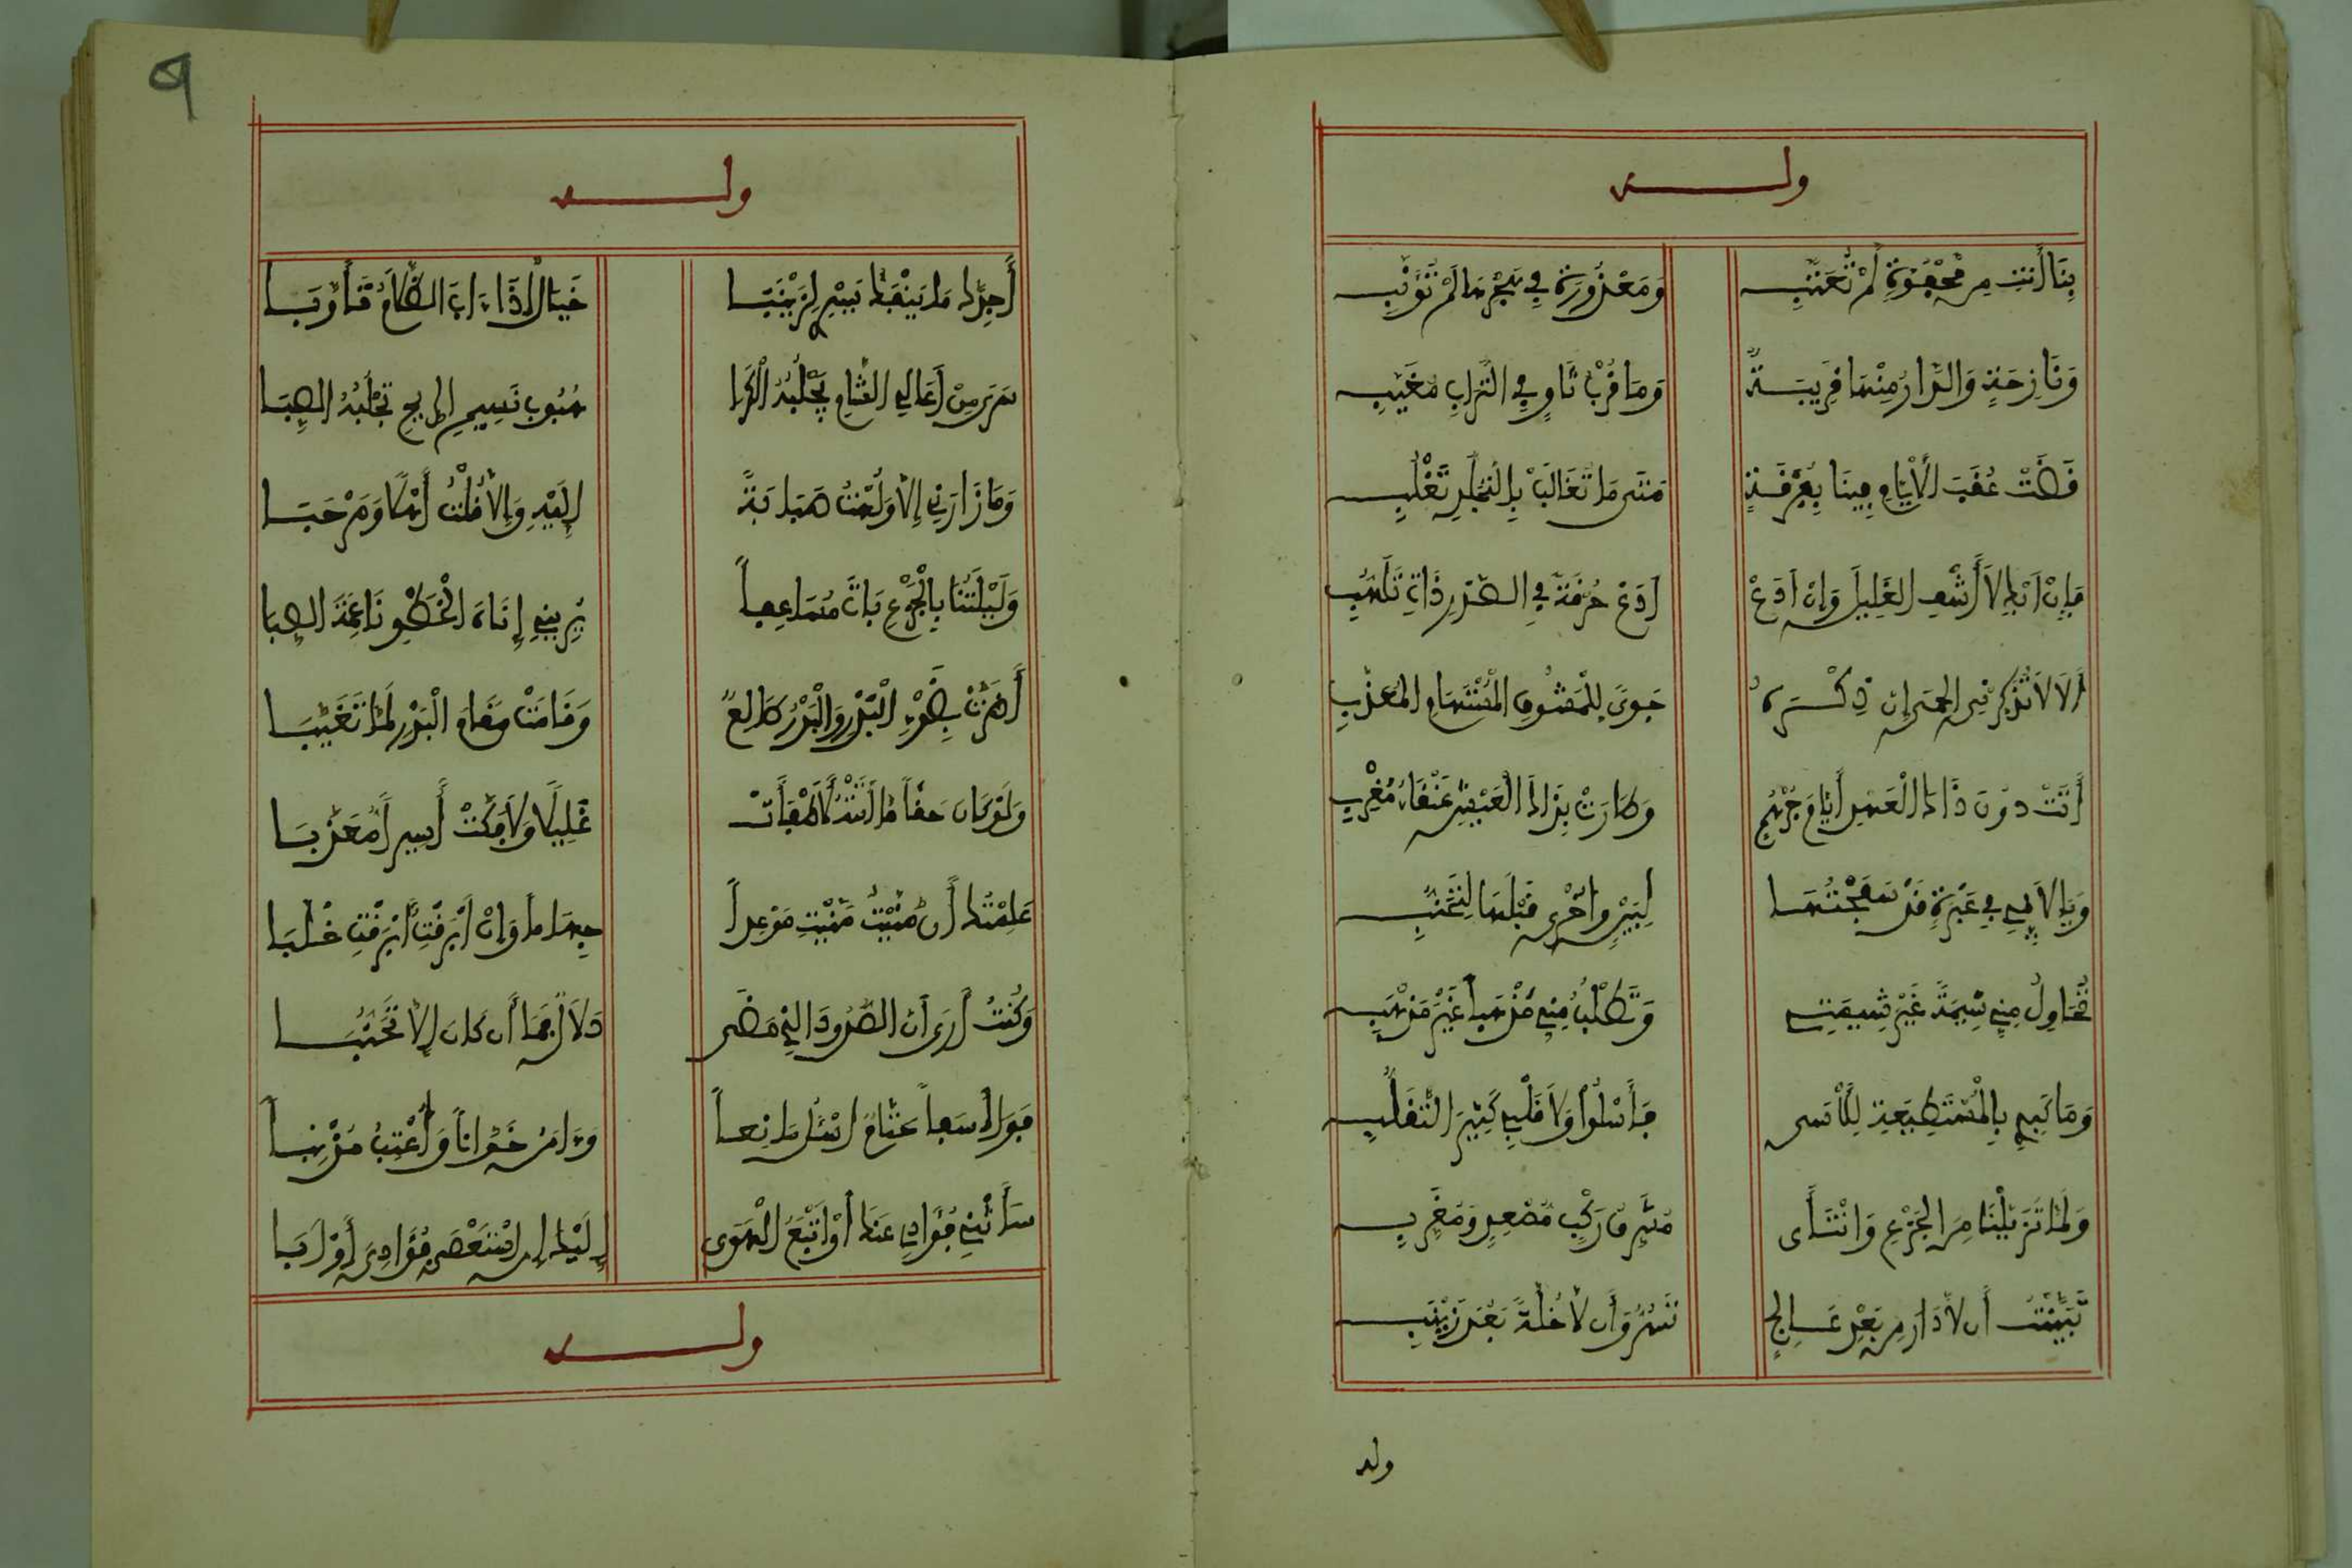 ولـــه
بِنَا أَنتِ مِن مَجْفُوَّةٍ لَمْ تُعَتَّبِ وَمَعْذُورَةٍ فِي هَجْرِهَا لَمْ تُؤَنَّبِ
وَنَازِحَةٍ وَالدَّارُ مِنْهَا قَرِيبَةٌ وَمَا قُرْبُ ثَاوٍ فِي التُّرَابِ مُغَيَّبِ
قَضَتْ عُقَبُ الأَيَّامِ فِينَا بِفُرْقَةٍ مَتَى مَا تُغَالَبْ بِالتَّجَلُّدِ تَغْلِبِ
فَإِنْ أَبْكِ لاَ أَشْفِ الغَلِيلَ وَإِنْ أَدَعْ أَدَعْ حُرْقَةً فِي الصَّدْرِ ذَاتَ تَلَهُّبِ
أَلاَ لاَ تُذَكِّرْنِي الحِمَى إِنَّ ذِكْرَهُ جَوًى لِلْمَشُوقِ الْمُسْتَهَامِ المُعَذَّبِ
أَتَتْ دُونَ ذَاكَ الْعَهْدِ أَيَّامُ جُرْهُمٍ وَطَارَتْ بِذَاكَ الْعَيْشِ عَنْقَاءُ مُغْرِبِ
وَيَا لاَئِمِي فِي عَبْرَةٍ قَدْ سَفَحْتُهَا لِبَيْنٍ وَأُخْرَى قَبْلَهَا لِتَجَنُّبِ
تُحَاوِلُ مِنِّي شِيمَةً غَيْرَ شِيمَتِي وَتَطْلُبُ مِنِّي مَذْهَباً غَيْرَ مَذْهَبِي
وَمَا كَبِدِي بِالْمُسْتَطِيعَةِ لِلأَسَى فَأَسْلُوا وَلاَ قَلْبِي كَثِيرَ التَّقَلُّبِ
وَلَمَّا تَزَيَّلْنَا مِنَ الجِزْعِ وَانْتَأَى مُشَرِّقُ رَكْبٍ مُصْعِدٍ وَمُغَرِّبِ
تَبَيَّنْتُ أَن لاَ دَارَ مِن بَعْدِ عَالِجٍ تَسُرُّ وَأَن لاَ خُلَّةً بَعْدَ زَيْنَبِ
ولـه
٩
ولـــه
أَجِدَّكَ مَا يَنْفَكُّ يَسْرِي لِزَيْنَبَا خَيَالٌ إِذَا ءَابَ الظَّلاَمُ تَأَوَّبَا
سَرَى مِنْ أَعَالِي الشَّامِ يَجْلُبُهُ الْكَرَا هُبُوبَ نَسِيمِ الرِّيحِ تَجْلُبُهُ الصَّبَا
وَمَا زَارَنِي إِلاَّ وَلِهْتُ صَبَابَةً إِلَيْهِ وَإِلاَّ قُلْتُ أَهْلاً وَمَرْحَبَا
وَلَيْلَتُنَا بِالْجِزْعِ بَاتَ مُسَاعِفاً يُرِينِي إِنَاةَ الْخَطْوِ نَاعِمَةَ الصِّبَا
أَضَرَّتْ بِضَوْءِ الْبَدْرِ وَالْبَدْرُ طَالِعٌ وَقَامَتْ مَقَامَ الْبَدْرِ لَمَّا تَغَيَّبَا
وَلَوْ كَانَ حَقّاً مَا أَتَتْهُ لأَطْفَأَتْ غَلِيلاً وَلاَفْتَكَّتْ أَسِيراً مُعَذَّبَا
عَلِمْتُكِ أَن مُنِّيْتِ مَنَّيْتِ مَوْعِداً جَهَاماً وَإِنْ أَبْرَقْتِ أَبْرَقْتِ خُلَّبَا
وَكُنْتُ أَرَى أَنَّ الصُّدُودَ الَّذِي مَضَى دَلاَلٌ فَمَا أَن كَانَ إِلاَّ تَجَنُّبَا
فَوَا أَسَفاً حَتَّامَ أَسْأَلُ مَانِعاً وَءَامَنُ خَوَّاناً وَأُعْتِبُ مُذْنِبَا
سَأَثْنِي فُؤَادِي عَنْكِ أَوْ أَتْبَعُ الْهَوَى إِلَيْكِ إِنِ اسْتَعْصَى فُؤَادِيَ أَوْ أَبَا
ولـــه